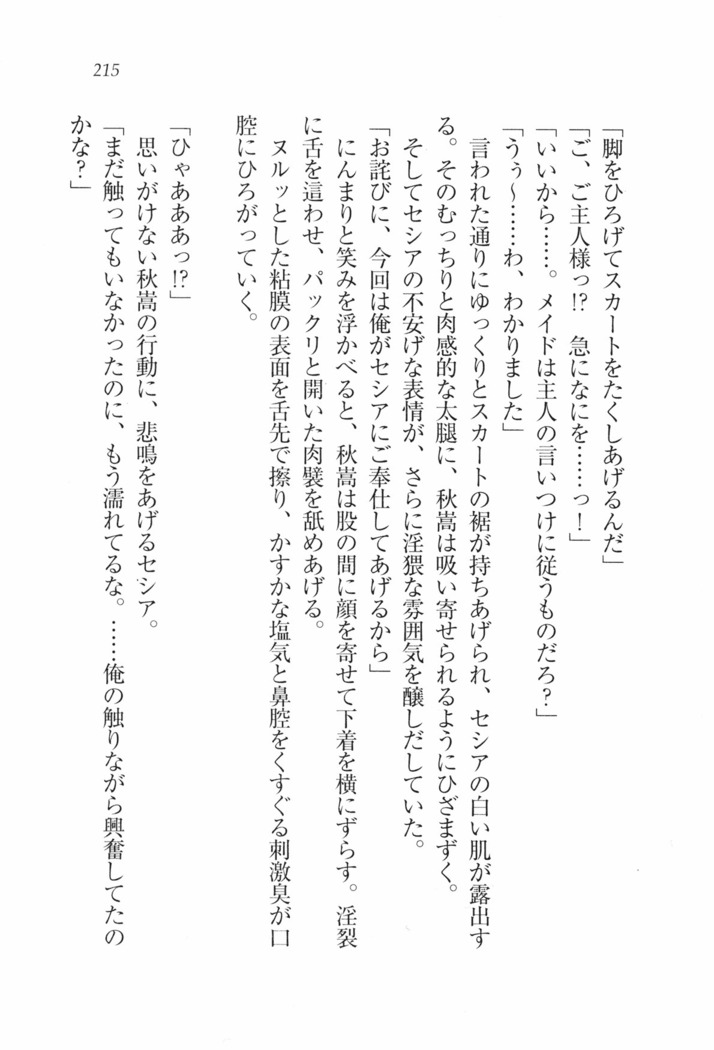 215
「脚をひろげてスカートをたくしあげるんだ」
「ご、ご主人様っ!?　急になにを……っ！」
「いいから……。メイドは主人の言いつけに従うものだろ？」
「うぅ～……わ、わかりました」
　言われた通りにゆっくりとスカートの裾が持ちあげられ、セシアの白い肌が露出す
る。そのむっちりと肉感的な太腿に、秋嵩は吸い寄せられるようにひざまずく。
　そしてセシアの不安げな表情が、さらに淫猥な雰囲気を醸しだしていた。
「お詫びに、今回は俺がセシアにご奉仕してあげるから」
　にんまりと笑みを浮かべると、秋嵩は股の間に顔を寄せて下着を横にずらす。淫裂
に舌を這わせ、パックリと開いた肉襞を舐めあげる。
　ヌルッとした粘膜の表面を舌先で擦り、かすかな塩気と鼻腔をくすぐる刺激臭が口
腔にひろがっていく。
「ひゃあああっ!?」
　思いがけない秋嵩の行動に、悲鳴をあげるセシア。
「まだ触ってもいなかったのに、もう濡れてるな。……俺の触りながら興奮してたの
かな？」